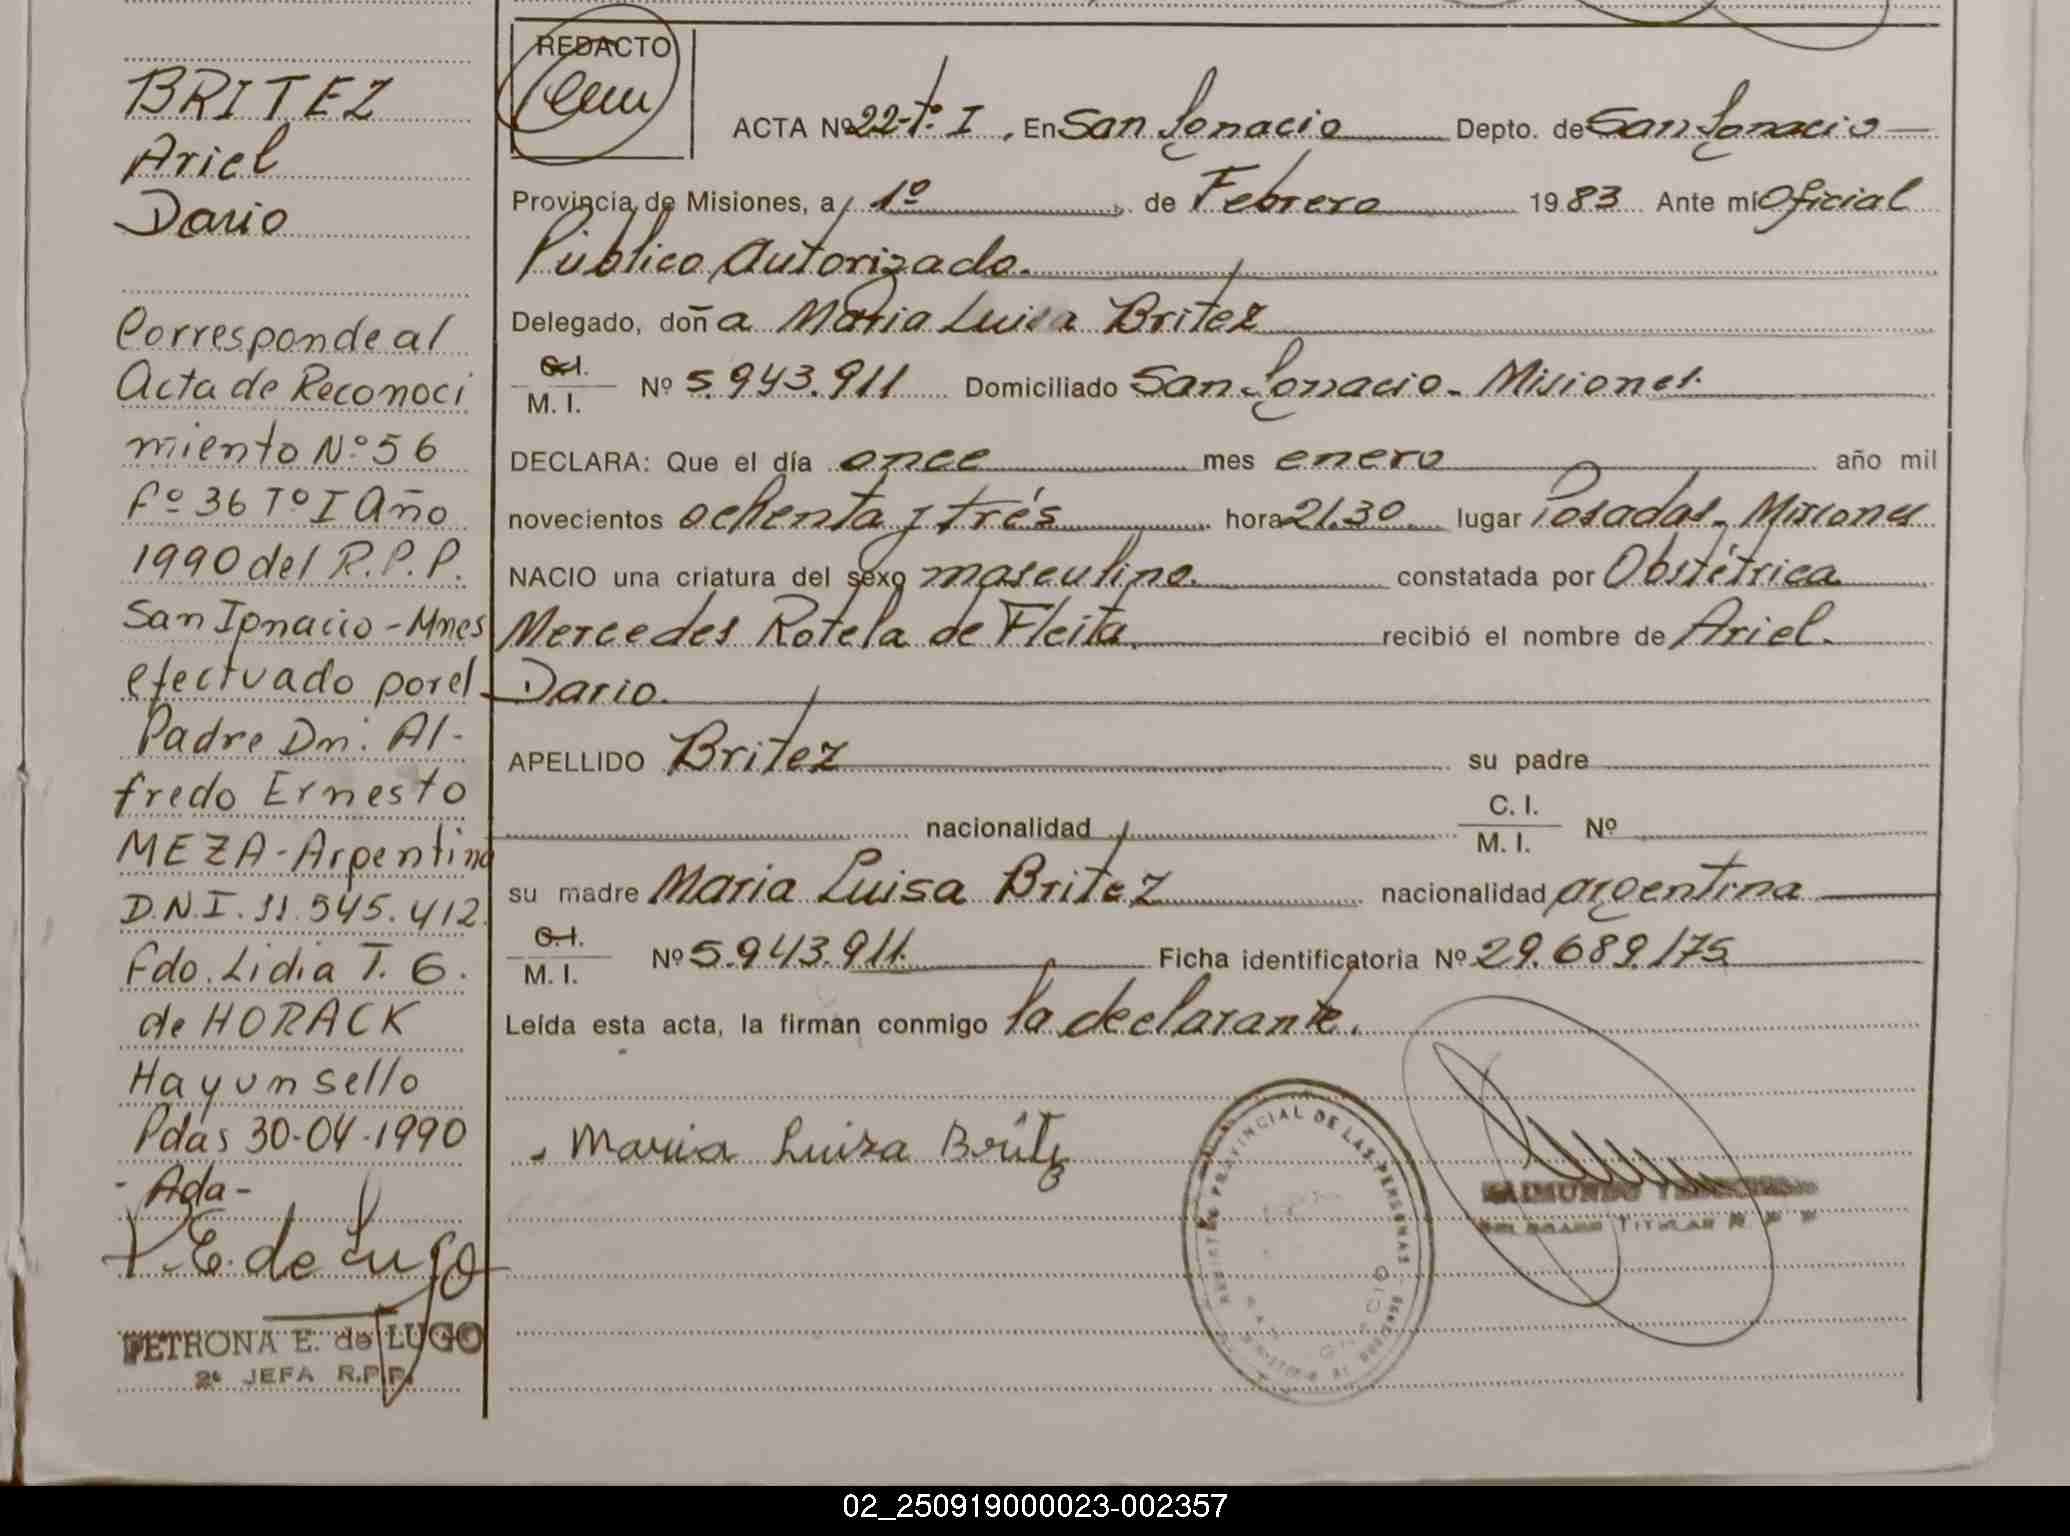 BRITEZ
Ariel
Dario
Corresponde al
Acta de Reconoci
miento Nº 56
Fº 36 Tº I Año
1990 del R.P.P.
San Ignacio - Mnes
efectuado por el
Padre Dn. Al-
fredo Ernesto
MEZA - Argentino
D.N.I. 11.545.412.
Fdo. Lidia T. G.
de HORACK
Hay un sello
Pdas 30-04-1990
- Ada -
P.E. de Lugo
PETRONA E. de LUGO
2º JEFA R.P.P.
REDACTO
ACTA Nº 22-Tº I, En San Ignacio Depto. de San Ignacio
Provincia de Misiones, a 1º de Febrero 1983 Ante mí Oficial
Público Autorizado.
Delegado, doña Maria Luisa Britez
C.I.
M. I. Nº 5.943.911 Domiciliado San Ignacio - Misiones.
DECLARA: Que el día once mes enero año mil
novecientos ochenta y trés hora 21.30 lugar Posadas - Misiones
NACIO una criatura del sexo masculino constatada por Obstétrica
Mercedes Rotela de Fleita recibió el nombre de Ariel
Dario.
APELLIDO Britez su padre
nacionalidad C. I.
M. I. Nº
su madre Maria Luisa Britez nacionalidad argentina
C.I.
M. I. Nº 5.943.911. Ficha identificatoria Nº 29.689.175
Leída esta acta, la firman conmigo la declarante.
Maria Luiza Britez
PROVINCIAL DE LAS PERSONAS
DELEGADO TITULAR
02_250919000023-002357